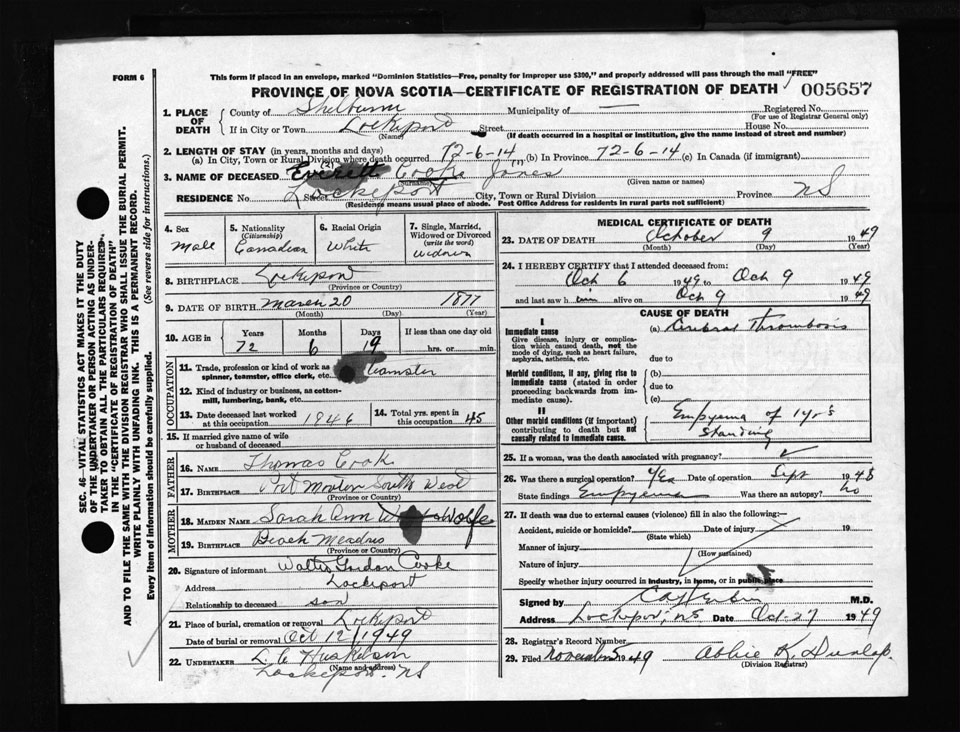 FORM 6
This form if placed in an envelope, marked "Dominion Statistics—Free, penalty for improper use $300," and properly addressed will pass through the mail "FREE"
PROVINCE OF NOVA SCOTIA—CERTIFICATE OF REGISTRATION OF DEATH 005657
1. PLACE OF DEATH
County of Shelburne Municipality of — Registered No.
(For use of Registrar General only)
If in City or Town Lockeport Street House No.
(Name) (If death occurred in a hospital or institution, give the name instead of street and number)
2. LENGTH OF STAY (in years, months and days)
(a) In City, Town or Rural Division where death occurred 72-6-14 (b) In Province 72-6-14 (c) In Canada (if immigrant)
3. NAME OF DECEASED Everett Cooke James
(Surname) (Given name or names)
RESIDENCE No. Street Lockeport City, Town or Rural Division Province NS
(Residence means usual place of abode. Post Office Address for residents in rural parts not sufficient)
4. Sex Male
5. Nationality (Citizenship) Canadian
6. Racial Origin White
7. Single, Married, Widowed or Divorced (write the word) Widower
8. BIRTHPLACE Lockeport
(Province or Country)
9. DATE OF BIRTH March 20 1877
(Month) (Day) (Year)
10. AGE in Years 72 Months 6 Days 19 If less than one day old hrs. or min.
OCCUPATION
11. Trade, profession or kind of work as spinner, teamster, office clerk, etc. teamster
12. Kind of industry or business, as cotton-mill, lumbering, bank, etc.
13. Date deceased last worked at this occupation 1946
14. Total yrs. spent in this occupation 45
15. If married give name of wife or husband of deceased
FATHER
16. Name Thomas Cook
17. Birthplace Port Mouton South West
(Province or Country)
MOTHER
18. Maiden Name Sarah Ann Wolfe
19. Birthplace Beach Meadows
(Province or Country)
20. Signature of informant Walter Gordon Cooke
Address Lockeport
Relationship to deceased son
21. Place of burial, cremation or removal Lockeport
Date of burial or removal Oct 12/1949
22. UNDERTAKER L. C. Huskilson
(Name and address)
Lockeport. NS
MEDICAL CERTIFICATE OF DEATH
23. DATE OF DEATH October 9 1949
(Month) (Day) (Year)
24. I HEREBY CERTIFY that I attended deceased from:
Oct 6 1949 to Oct 9 1949
and last saw him alive on Oct 9 1949
CAUSE OF DEATH
I
Immediate cause
Give disease, injury or complication which caused death, not the mode of dying, such as heart failure, asphyxia, asthenia, etc.
(a) Cerebral Thrombosis
due to
Morbid conditions, if any, giving rise to immediate cause (stated in order proceeding backwards from immediate cause).
(b)
due to
(c)
II
Other morbid conditions (if important) contributing to death but not causally related to immediate cause.
Empyema of 1 yr's
Standing
25. If a woman, was the death associated with pregnancy?
26. Was there a surgical operation? Yes Date of operation Sept 1948
State findings Empyema Was there an autopsy? no
27. If death was due to external causes (violence) fill in also the following:—
Accident, suicide or homicide? Date of injury 19
(State which)
Manner of injury
(How sustained)
Nature of injury
Specify whether injury occurred in industry, in home, or in public place
Signed by M.D.
Address Lockeport, NS Date Oct. 27 1949
28. Registrar's Record Number
29. Filed November 5 1949 Abbie K. Dunlap.
(Division Registrar)
SEC. 46—VITAL STATISTICS ACT MAKES IT THE DUTY
OF THE UNDERTAKER OR PERSON ACTING AS UNDER-
TAKER TO OBTAIN ALL THE PARTICULARS REQUIRED
IN THE "CERTIFICATE OF REGISTRATION OF DEATH"
AND TO FILE THE SAME WITH THE DIVISION REGISTRAR WHO SHALL ISSUE THE BURIAL PERMIT.
WRITE PLAINLY WITH UNFADING INK. THIS IS A PERMANENT RECORD.
Every item of information should be carefully supplied. (See reverse side for instructions.)